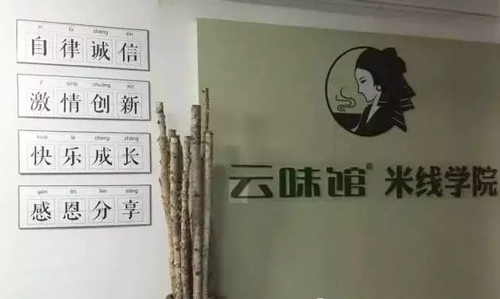 zì lǜ chéng xìn
自律诚信
jī qíng chuàng xīn
激情创新
kuài lè chéng zhǎng
快乐成长
gǎn ēn fēn xiǎng
感恩分享
云味馆® 米线学院